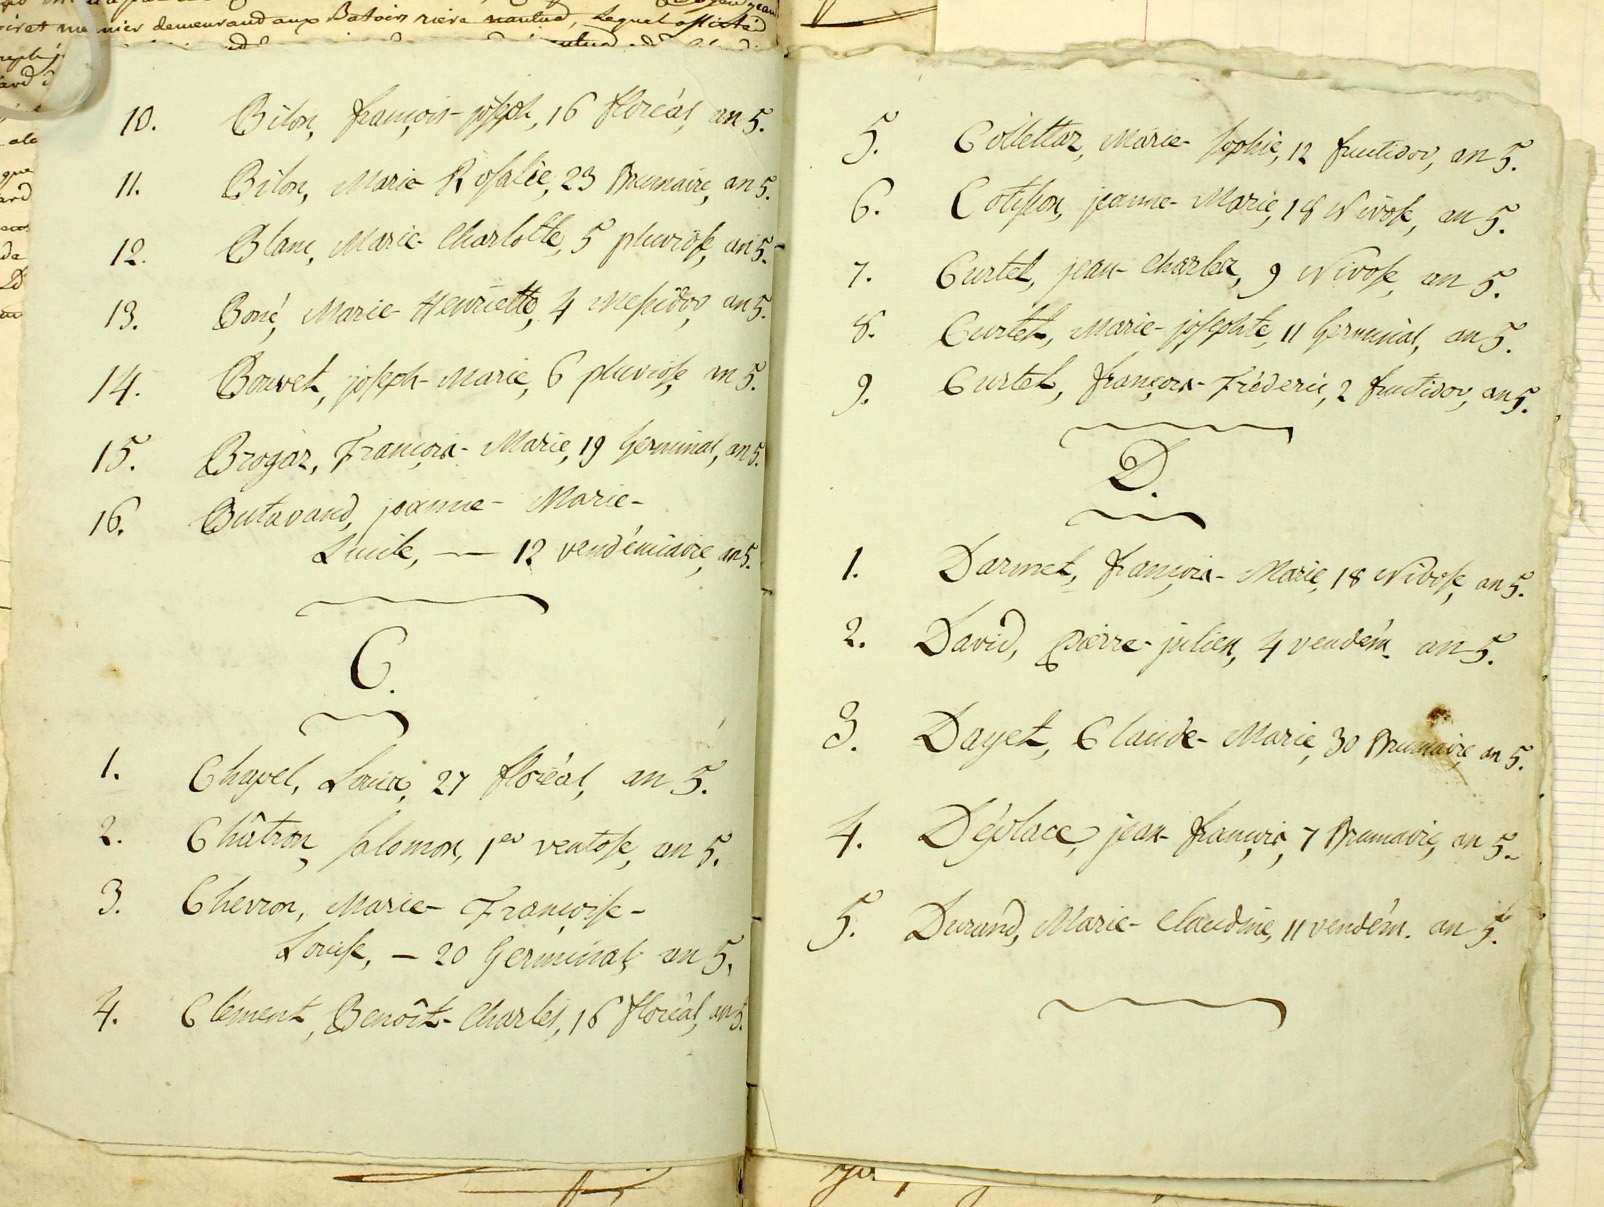 nier demeurand aux Batoirs riere nantua, lequel assisté
10. Bilon, françois-joseph, 16 floréal, an 5.
11. Bilon, Marie Rosalie, 23 Brumaire, an 5.
12. Blanc, Marie-Charlotte, 5 pluviôse, an 5.
13. Boné, Marie-Henriette, 4 Messidor, an 5.
14. Bouvet, joseph-Marie, 6 pluviôse, an 5.
15. Brogaz, François-Marie, 19 Germinal, an 5.
16. Butavand, jeanne-Marie-
Lucile, — 12 vendémiaire, an 5.
C.
1. Chapel, Louis, 27 floréal, an 5.
2. Châtron, salomon, 1er ventose, an 5.
3. Chevron, Marie-Françoise-
Louise, — 20 Germinal, an 5.
4. Clément, Benoît-Charles, 16 floréal, an 5.
5. Collettaz, Marie-sophie, 12 fructidor, an 5.
6. Cotisson, jeanne-Marie, 18 Nivose, an 5.
7. Curtet, jean-Charles, 9 Nivose, an 5.
8. Curtet, Marie-josephte, 11 Germinal, an 5.
9. Curtet, françois-Fréderic, 2 fructidor, an 5.
D.
1. Darmet, françois-Marie, 18 Nivose, an 5.
2. David, Pierre-julien, 4 vendém. an 5.
3. Dayet, Claude-Marie, 30 Brumaire, an 5.
4. Déplace, jean-françois, 7 Brumaire, an 5.
5. Durand, Marie-Claudine, 11 vendém. an 5.